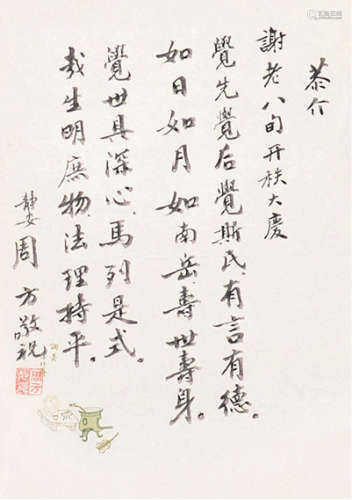 恭介
謝老八旬開秩大慶
覺先覺后覺斯民。有言有德。
如日如月如南岳。壽世壽身。
覺世具深心。馬列是式。
哉生明庶物。法理持平。
靜安周方敬祝